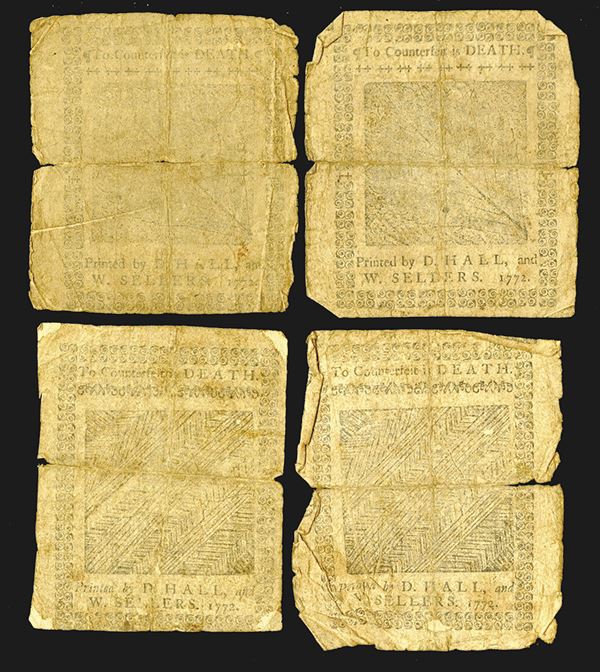 To Counterfeit is DEATH.
Printed by D. HALL, an
W. SELLERS. 1772.
To Counterfeit is DEATH.
Printed by D. HALL, and
W. SELLERS. 1772.
To Counterfeit is DEATH.
Printed by D. HALL, and
W. SELLERS. 1772.
To Counterfeit is DEATH.
Printed by D. HALL, and
SELLERS. 1772.